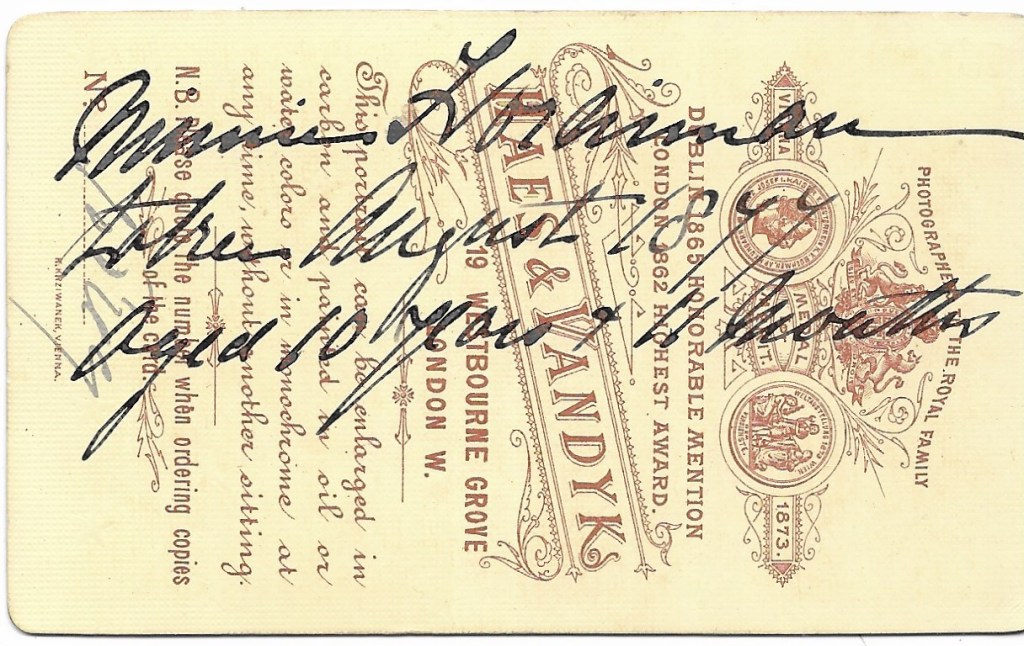 Minnie Норман
taken August 1877
aged 10 years & 4 Months
PHOTOGRAPHERS TO THE ROYAL FAMILY
VIENNA
MEDAL
1873.
DUBLIN 1865 HONORABLE MENTION
LONDON 1862 HIGHEST AWARD.
HAES & VANDYK
19 WESTBOURNE GROVE
LONDON W.
This portrait can be enlarged in
carbon and painted in oil or
water colors or in monochrome at
any time, without another sitting.
N.B. Please quote the number when ordering copies
of the carte
No.
K.KRZIWANEK, VIENNA.